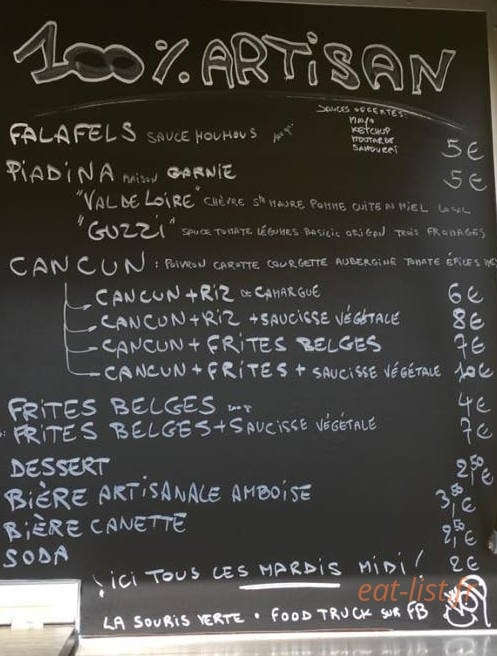 100% ARTISAN
SAUCES OFFERTES:
MAYO
KETCHUP
MOUTARDE
SAMOURAI
FALAFELS SAUCE HOUMOUS 5€
PIADINA MAISON GARNIE 5€
"VAL DE LOIRE" CHÈVRE Ste MAURE POMME CUITE AU MIEL LOCAL
"GUZZI" SAUCE TOMATE LÉGUMES BASILIC ORIGAN TROIS FROMAGES
CANCUN : POIVRON CAROTTE COURGETTE AUBERGINE TOMATE ÉPICES
CANCUN + RIZ DE CAMARGUE 6€
CANCUN + RIZ + SAUCISSE VÉGÉTALE 8€
CANCUN + FRITES BELGES 7€
CANCUN + FRITES + SAUCISSE VÉGÉTALE 10€
FRITES BELGES 4€
FRITES BELGES + SAUCISSE VÉGÉTALE 7€
DESSERT 2,50€
BIÈRE ARTISANALE AMBOISE 3,50€
BIÈRE CANETTE 2,50€
SODA 2€
ICI TOUS LES MARDIS MIDI!
eat-list.fr
LA SOURIS VERTE • FOOD TRUCK SUR FB